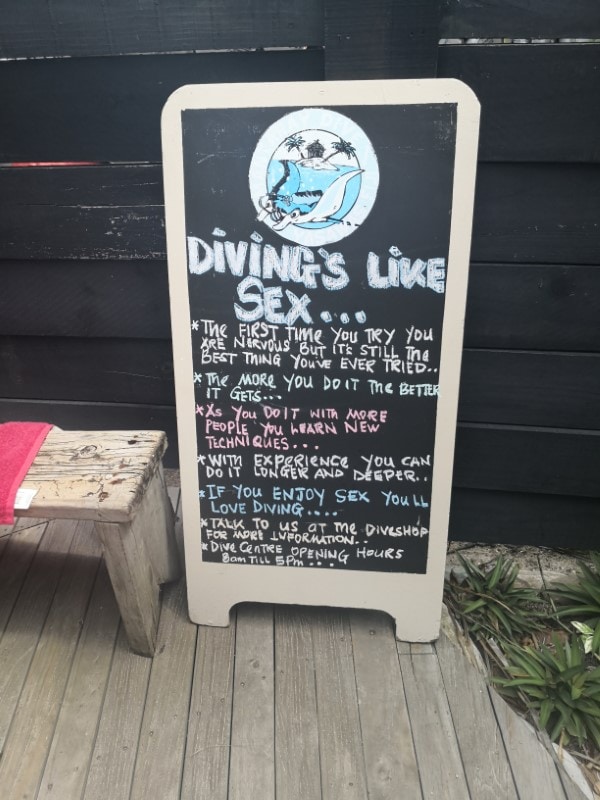 DIVING'S LIKE
SEX...
*THE FIRST TIME YOU TRY YOU
ARE NERVOUS BUT IT'S STILL THE
BEST THING YOU'VE EVER TRIED..
*THE MORE YOU DO IT THE BETTER
IT GETS...
*AS YOU DO IT WITH MORE
PEOPLE YOU LEARN NEW
TECHNIQUES...
*WITH EXPERIENCE YOU CAN
DO IT LONGER AND DEEPER..
*IF YOU ENJOY SEX YOU'LL
LOVE DIVING....
*TALK TO US AT THE DIVESHOP
FOR MORE INFORMATION..
*DIVE CENTRE OPENING HOURS
8am TILL 5Pm...